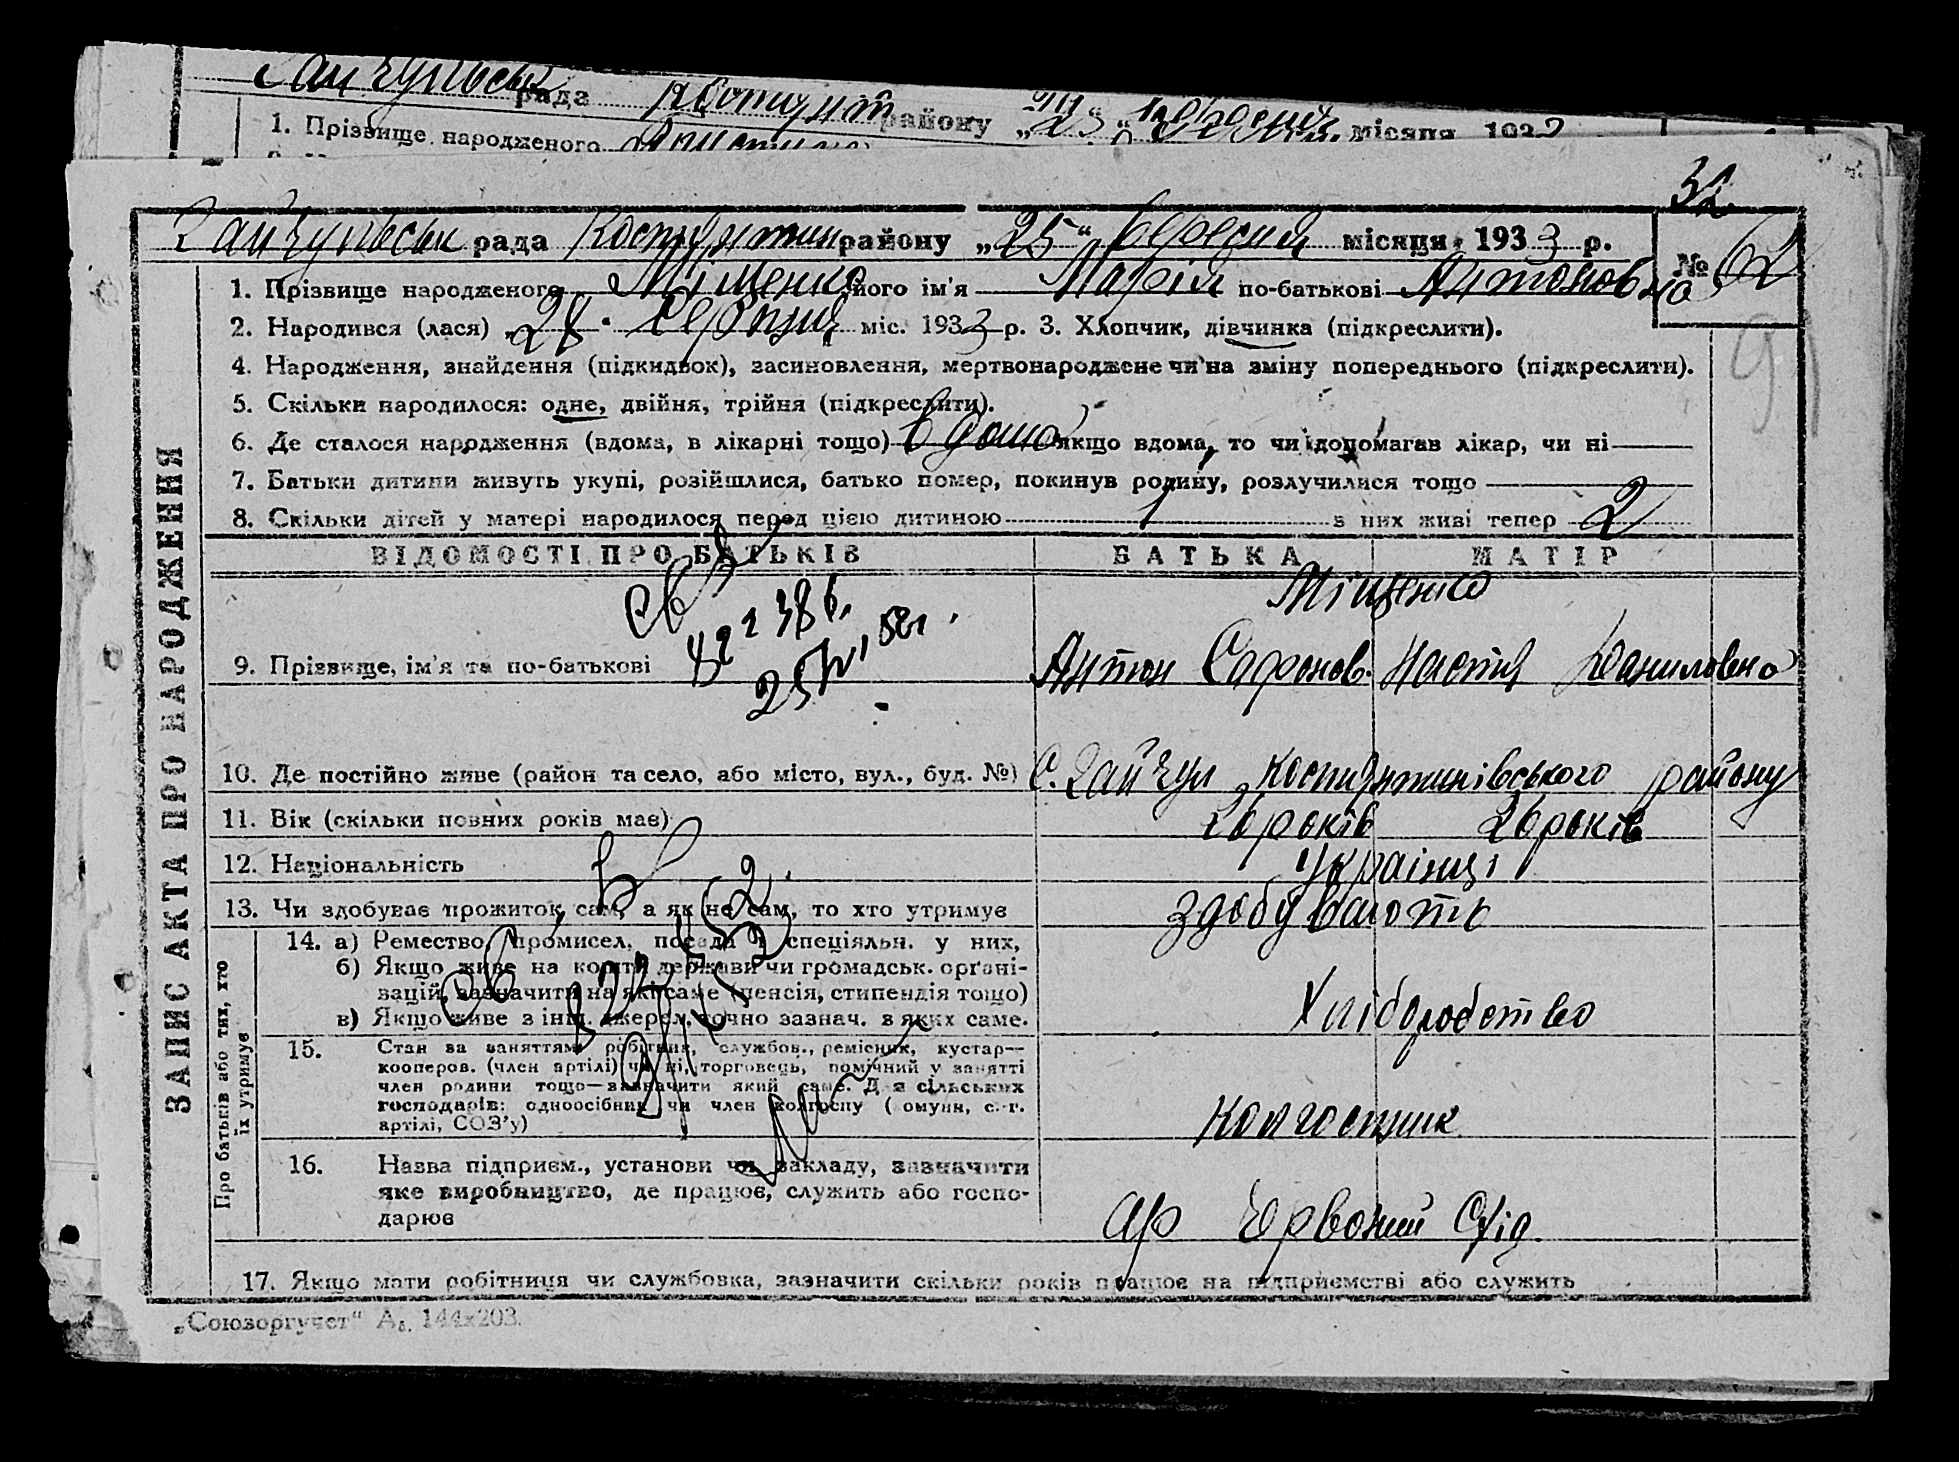 Гайчульська рада Костянт району „25“ вересня місяця 193
1. Прізвище народженого
32
Гайчульськ рада Костянтин району „25“ вересня місяця 1933 р.
№ 62
1. Прізвище народженого Міщенко його ім'я Марія по-батькові Антоновна
2. Народився (лася) „28 серпня міс. 1933 р. 3. Хлопчик, дівчинка (підкреслити).
91
4. Народження, знайдення (підкидьок), засиновлення, мертвонароджене чи на зміну попереднього (підкреслити).
5. Скільки народилося: одне, двійня, трійня (підкреслити).
6. Де сталося народження (вдома, в лікарні тощо) вдома якщо вдома, то чи допомагав лікар, чи ні
7. Батьки дитини живуть укупі, розійшлися, батько помер, покинув родину, розлучилися тощо
8. Скільки дітей у матері народилося перед цією дитиною 1 з них живі тепер 2
ЗАПИС АКТА ПРО НАРОДЖЕННЯ
ВІДОМОСТІ ПРО БАТЬКІВ БАТЬКА МАТІР
Міщенко
9. Прізвище, ім'я та по-батькові Антон Сафонов. Настя Даниловна
10. Де постійно живе (район та село, або місто, вул., буд. №) С. Гайчул Костянтинівського району
11. Вік (скільки повних років має) 26 років 26 років
12. Національність Українці
13. Чи здобуває прожиток сам, а як не сам, то хто утримує здобувають
Про батьків або тих, хто їх утримує
14. а) Ремество, промисел, посада й спеціяльн. у них,
б) Якщо живе на кошти держави чи громадськ. орґані-
зацій, зазначити на які саме (пенсія, стипендія тощо)
в) Якщо живе з інш. джерел, точно зазнач. з яких саме.
Хліборобство
15. Стан за заняттям: робітник, службов., ремісник, кустар—
кооперов. (член артілі) чи ні, торговець, помічний у занятті
член родини тощо—зазначити який саме. Для сільських
господарів: одноосібник чи член колгоспу (комуни, с.-г.
артілі, СОЗ'у)
Колгоспник
16. Назва підприєм., установи чи закладу, зазначити
яке виробництво, де працює, служить або госпо-
дарює
ар Червоний Схід.
17. Якщо мати робітниця чи службовка, зазначити скільки років працює на підприємстві або служить
„Союзоргучет“ А₆. 144х203.